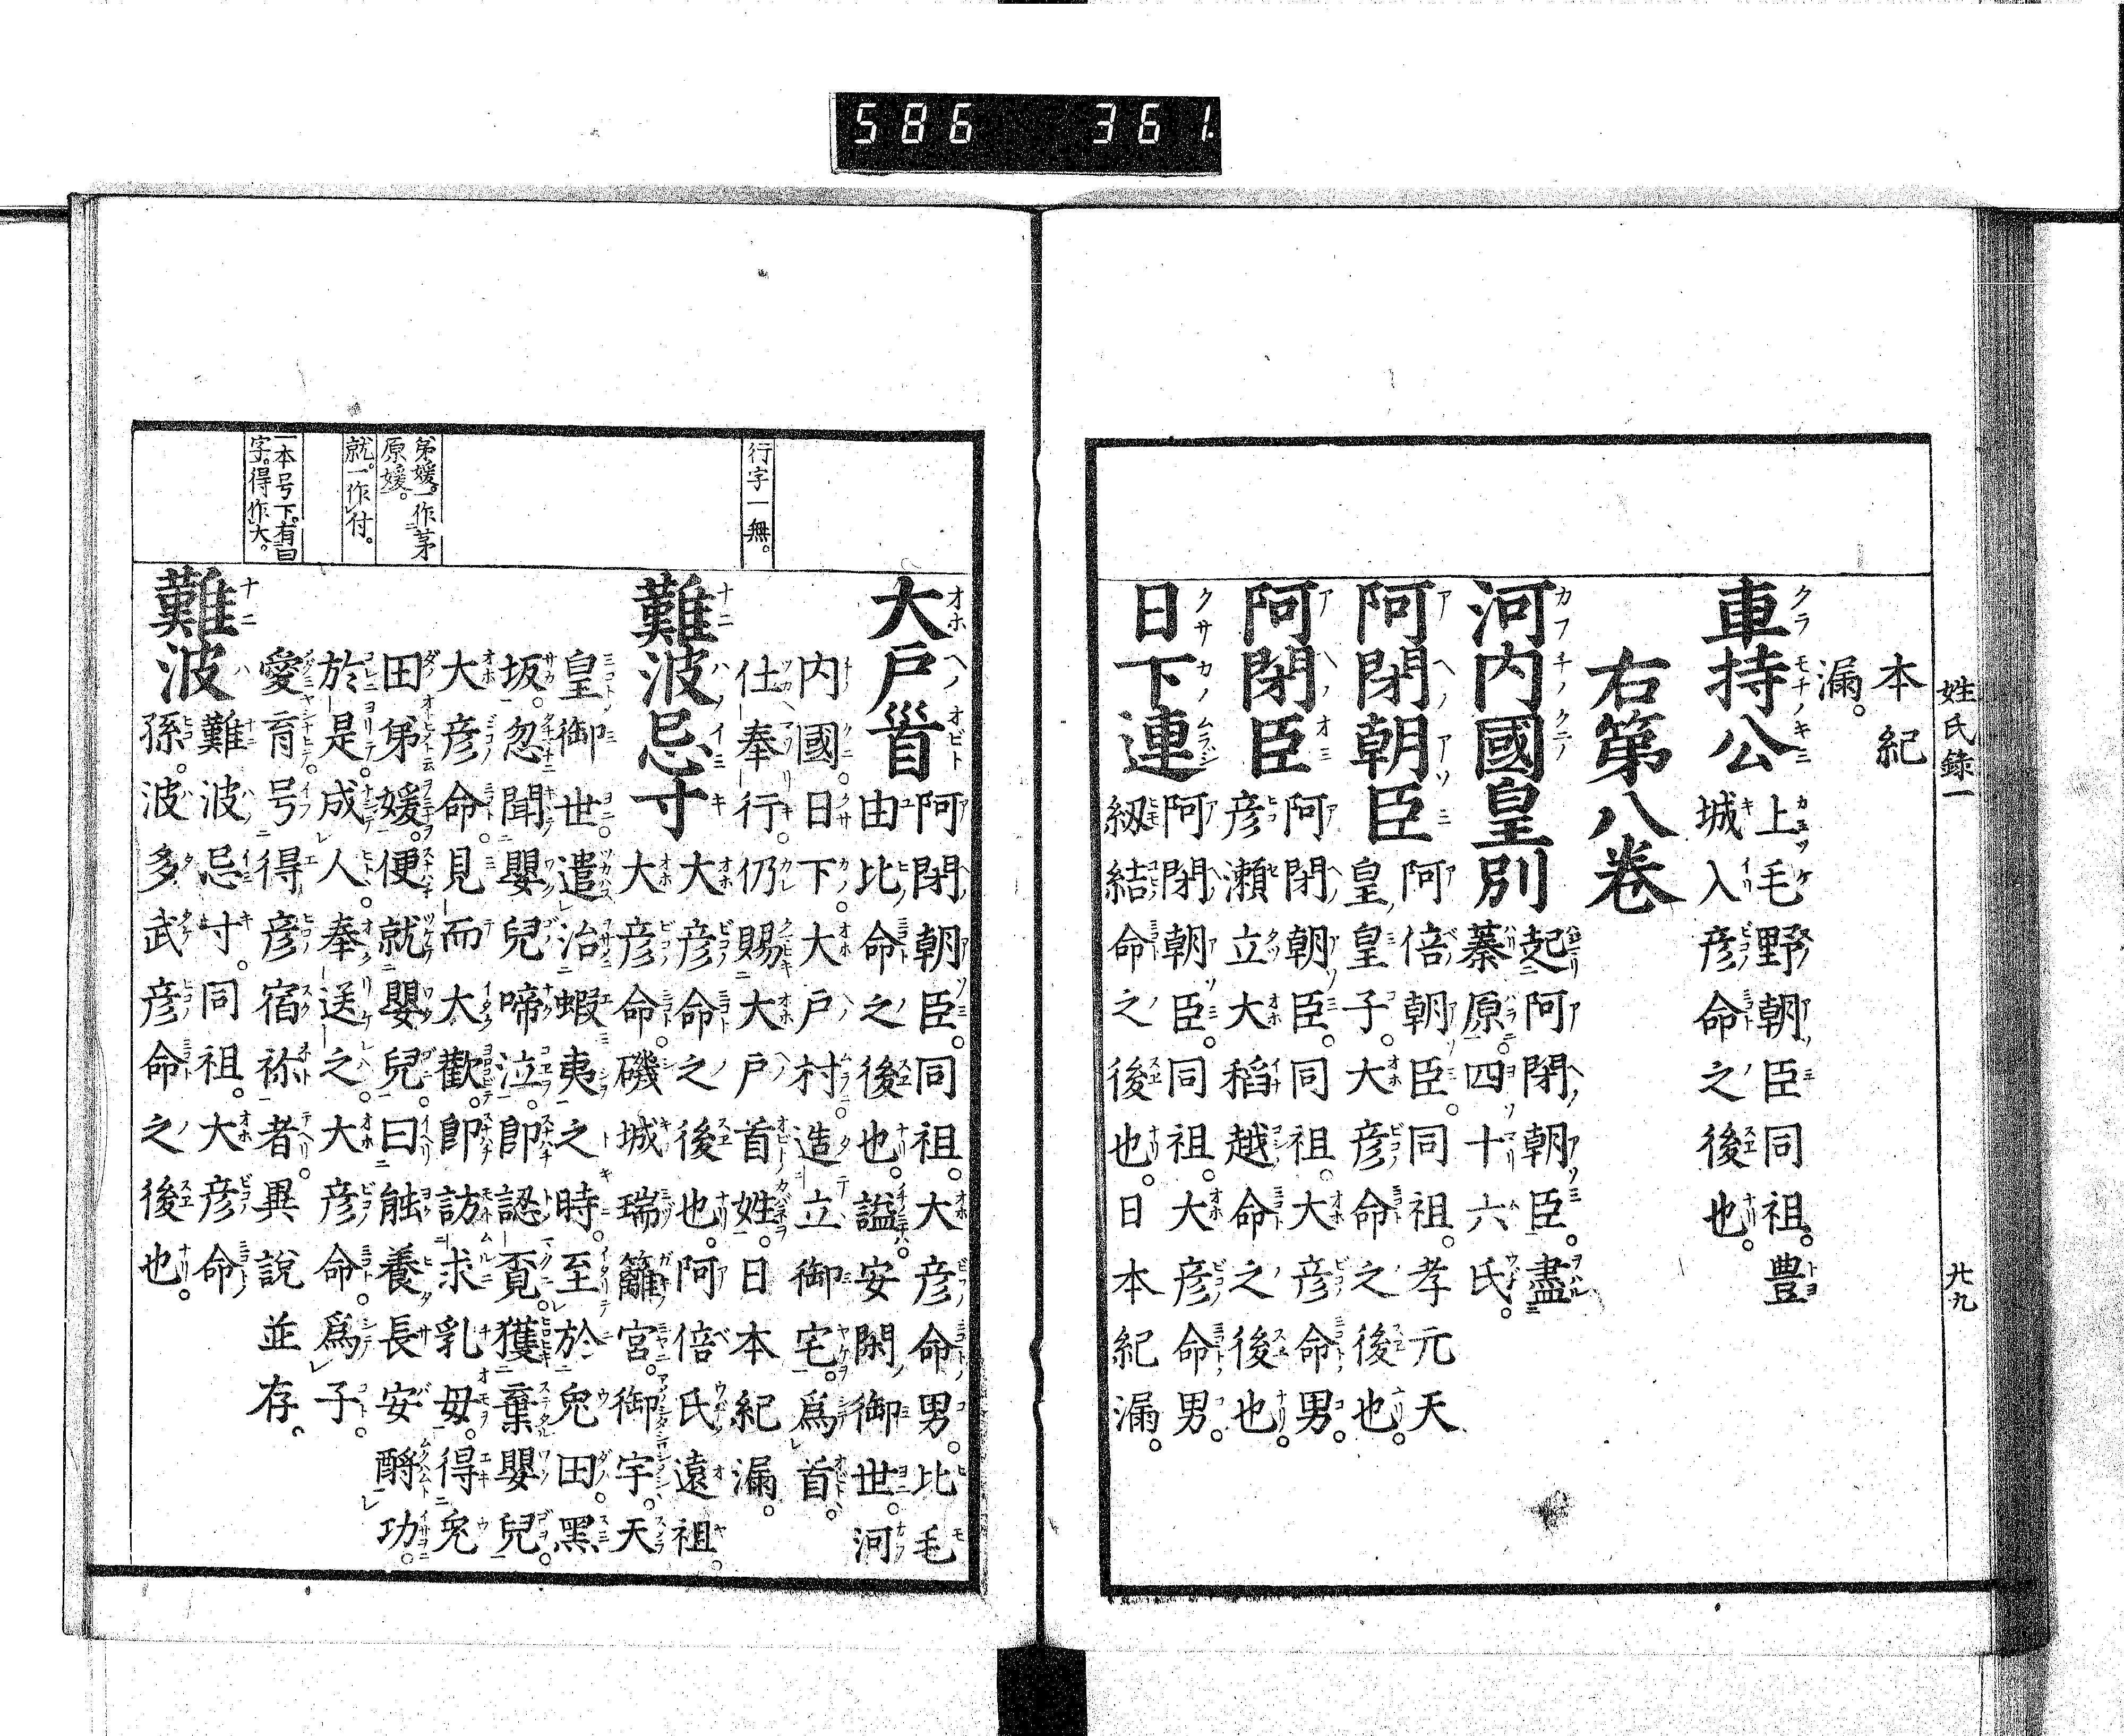 586 361
姓氏録一
廿九
本紀
漏。
車持公
上毛野朝臣同祖。豊
城入彦命之後也。
右第八巻
河内國皇別
起阿閉朝臣。盡
蓁原。四十六氏。
阿閉朝臣
阿倍朝臣。同祖。孝元天
皇皇子。大彦命之後也。
阿閉臣
阿閉朝臣。同祖。大彦命男。
彦瀬立大稻越命之後也。
日下連
阿閉朝臣。同祖。大彦命男。
紐結命之後也。日本紀漏。
大戸首
阿閉朝臣。同祖。大彦命男。比毛
由比命之後也。謚安閑御世。河
内國。日下。大戸村造立御宅。爲首。
仕奉行。仍賜大戸首姓。日本紀漏。
難波忌寸
大彦命之後也。阿倍氏遠祖。
大彦命。磯城瑞籬宮。御宇。天
皇御世。遣治蝦夷之時。至於兔田。黑
坂。忽聞嬰兒啼泣。卽認覔。獲棄嬰兒。
大彦命。見而大歡。卽訪求乳母。得兔
田弟媛。便就嬰兒。曰能養長安酧功。
於是。成人。奉送之。大彦命。爲子。
愛育号得彦宿祢者。異說並存。
難波
難波忌寸。同祖。大彦命
孫。波多武彦命之後也。
行字一無。
弟媛。一作茅
原媛。
就。一作付。
一本号下。有曰
字。得作大。